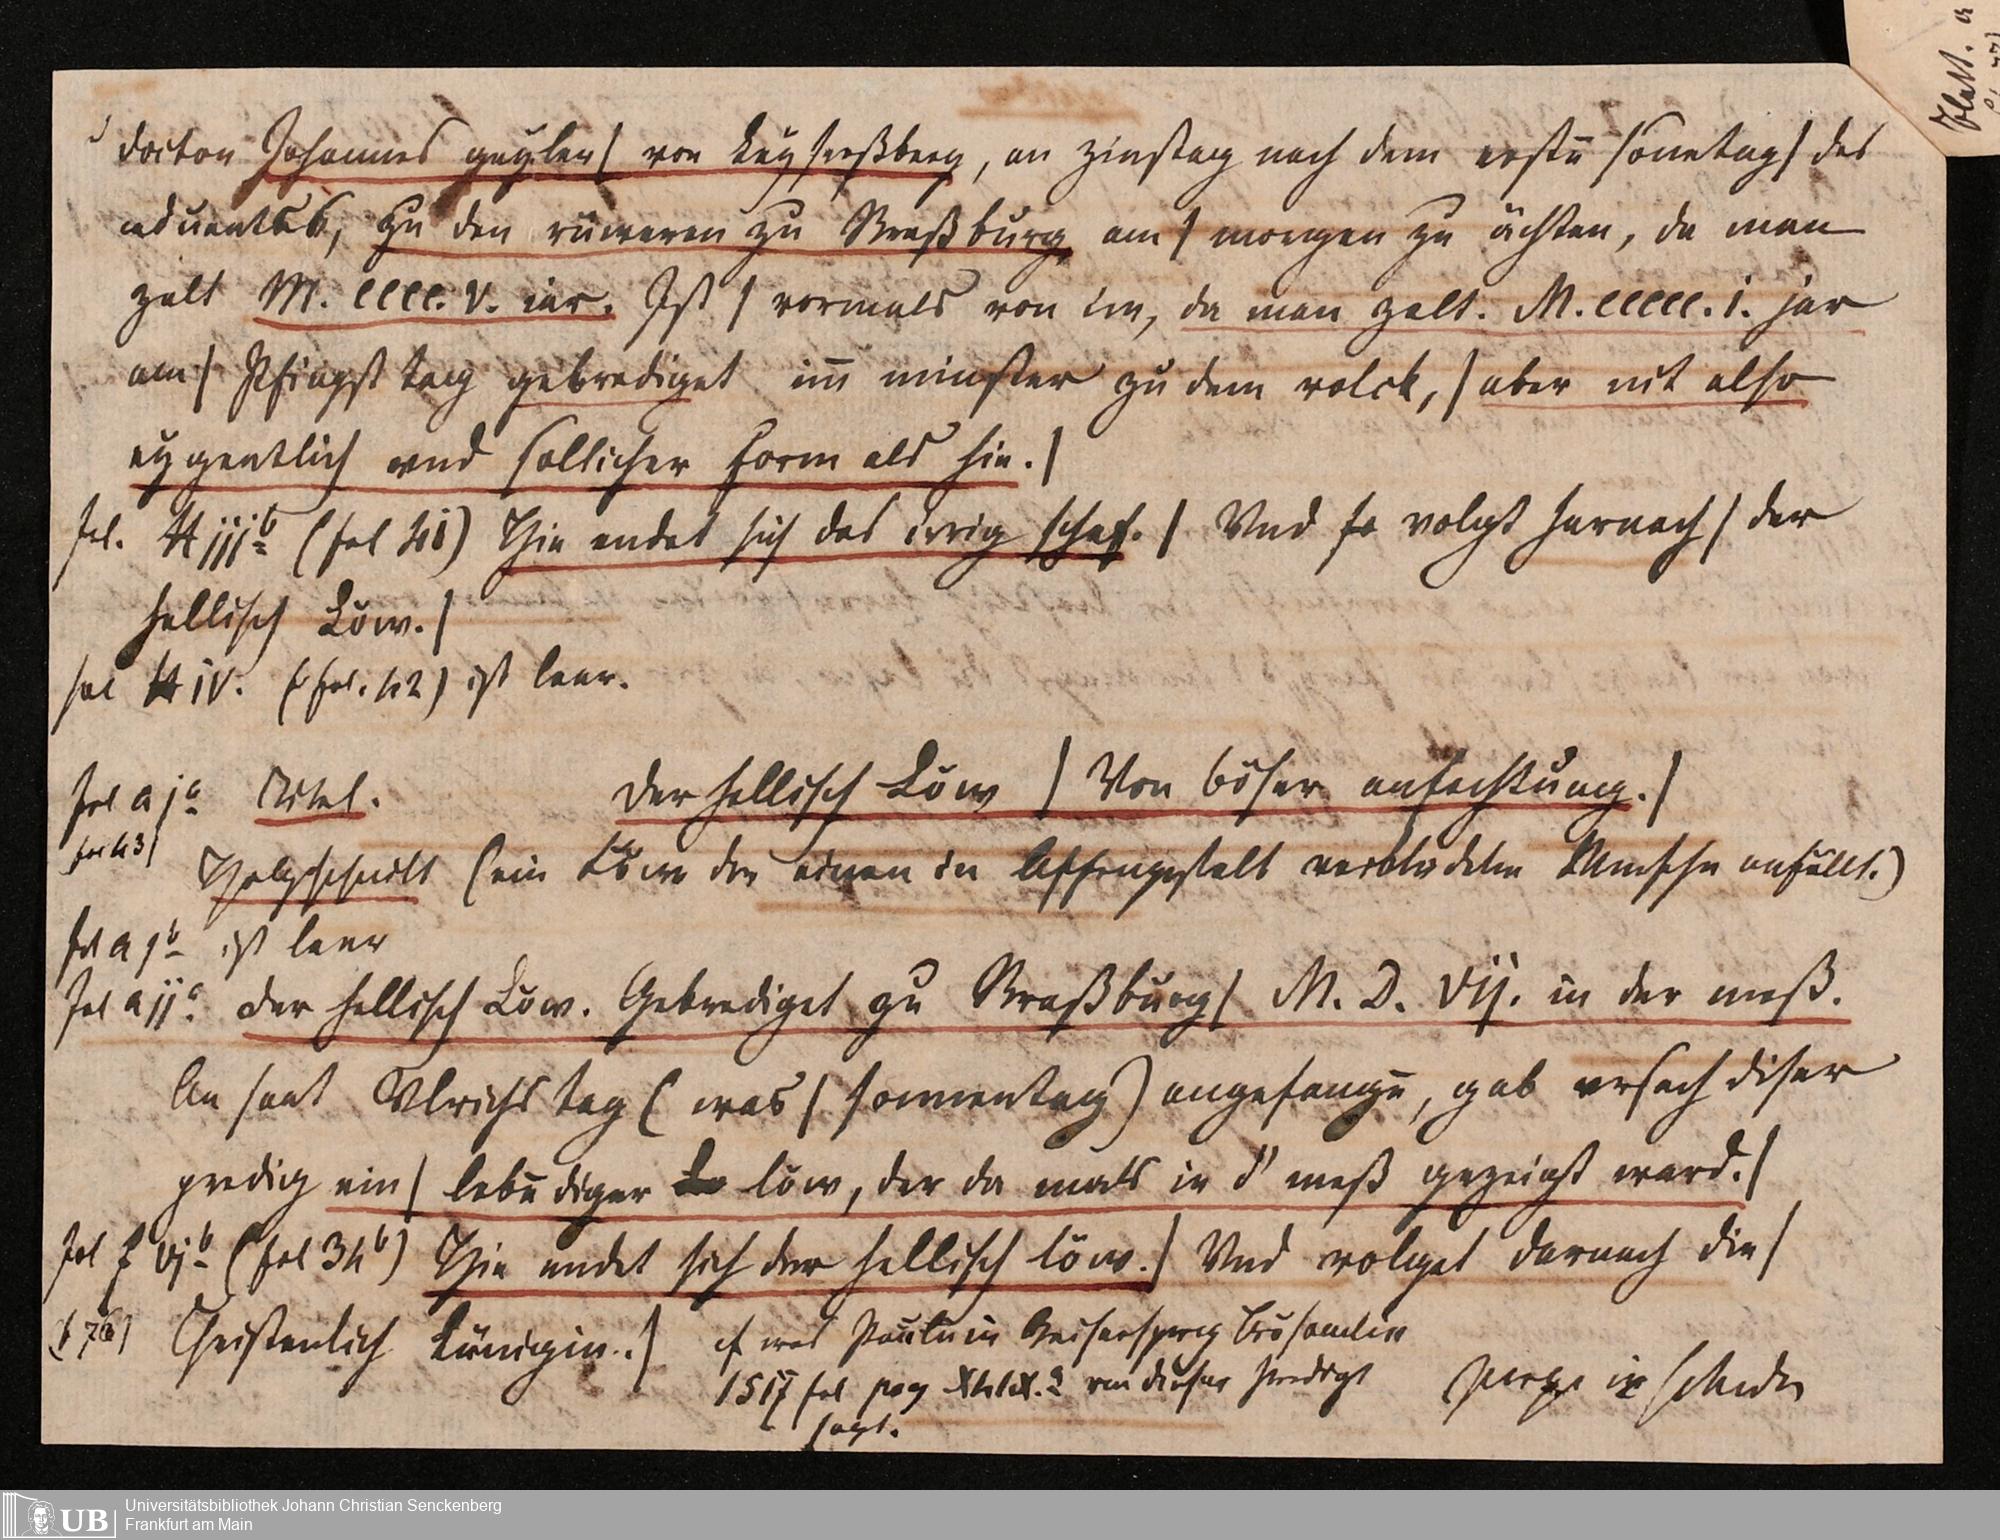 doctor Johannes geyler | von Keysersßberg, an zinstag nach dem erstē sonetag | des
aduentes, zu den rüweren zu Straßburg am | morgen zu ächten, da man
zalt M. cccc. v. iar. Ist | vormals von im, da man zalt. M. ccccc. i. jar
am | Pfingst tag gebrediget im̄ münster zu dem volck, | aber nit also
eygentlich vnd sollicher form als hie. |
fol. H iijb (fol 41) Hie endet sich das irrig schaf. | Vnd so volgt harnach | der
hellisch Löw. |
fol H iv. (fol. 42) ist leer.
fol a ja Titel. Der hellisch Löw | Von böser anfechtung. |
fol 43)
Holzschnitt (ein Löwe der einen in Affengestalt Menschen anfällt.)
fol a jb ist leer
fol a ija Der hellisch Löw. Gebrediget zu Straßburg | M. D. Vij. in der meß.
An sant Vlrichs tag (was | sonnentag) angefangē, gab vrsach diser
predig ein | lebēdiger löw, der da mals in d' meß gezeigt ward. |
fol f vjb (fol 34b) Hie endet sich der hellisch löw. | Vnd volget darnach die |
Christenlich Künigin. | cf was Pauli in Keisersperg Brösamlin
1517 fol von dieser Predigt
sagt.
Blatt.
Universitätsbibliothek Johann Christian Senckenberg
Frankfurt am Main
UB